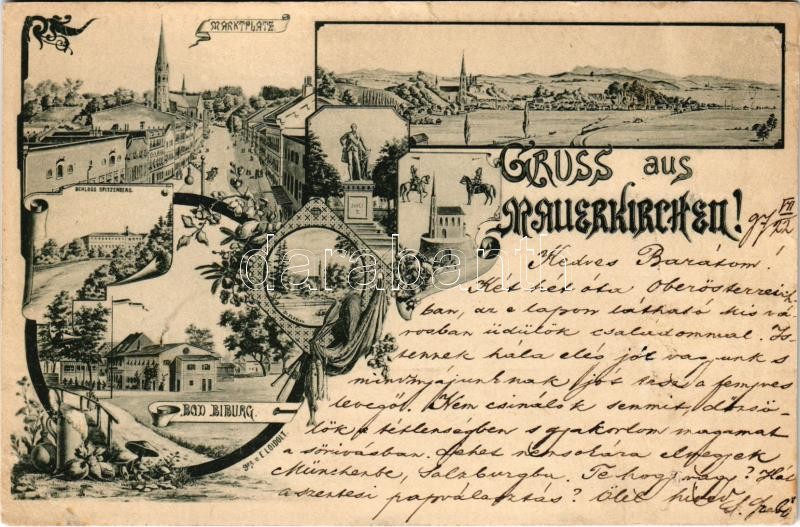 MARKTPLATZ
SCHLOSS SPITZENBERG.
JOSEF II.
GRUSS aus
MAUERKIRCHEN!
97 VII/22
BAD BIBURG.
gez. v. E. LOIDOLT
darabanth
Kedves Barátom!
Két hét óta Oberösterreich-
ban, az e lapon látható kis vá-
rosban üdülök családommal. Is-
tennek hála elég jól vagyunk s
mindnyájunknak jót tesz a fenyves
levegő. Nem csinálok semmit, dőzsö-
lök a tétlenségben s gyakorlom magamat
a sörivásban. Lehet nemsokára elmegyek
Münchenbe, Salzburgba. Te hogy vagy? Hát
a szentesi papválasztás? Ölel híved
Szabó